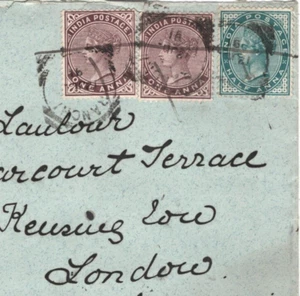 INDIA POSTAGE INDIA POSTAGE INDIA POSTAGE
ONE ANNA ONE ANNA
Lautour
arcourt Terrace
Kensing Tow
London